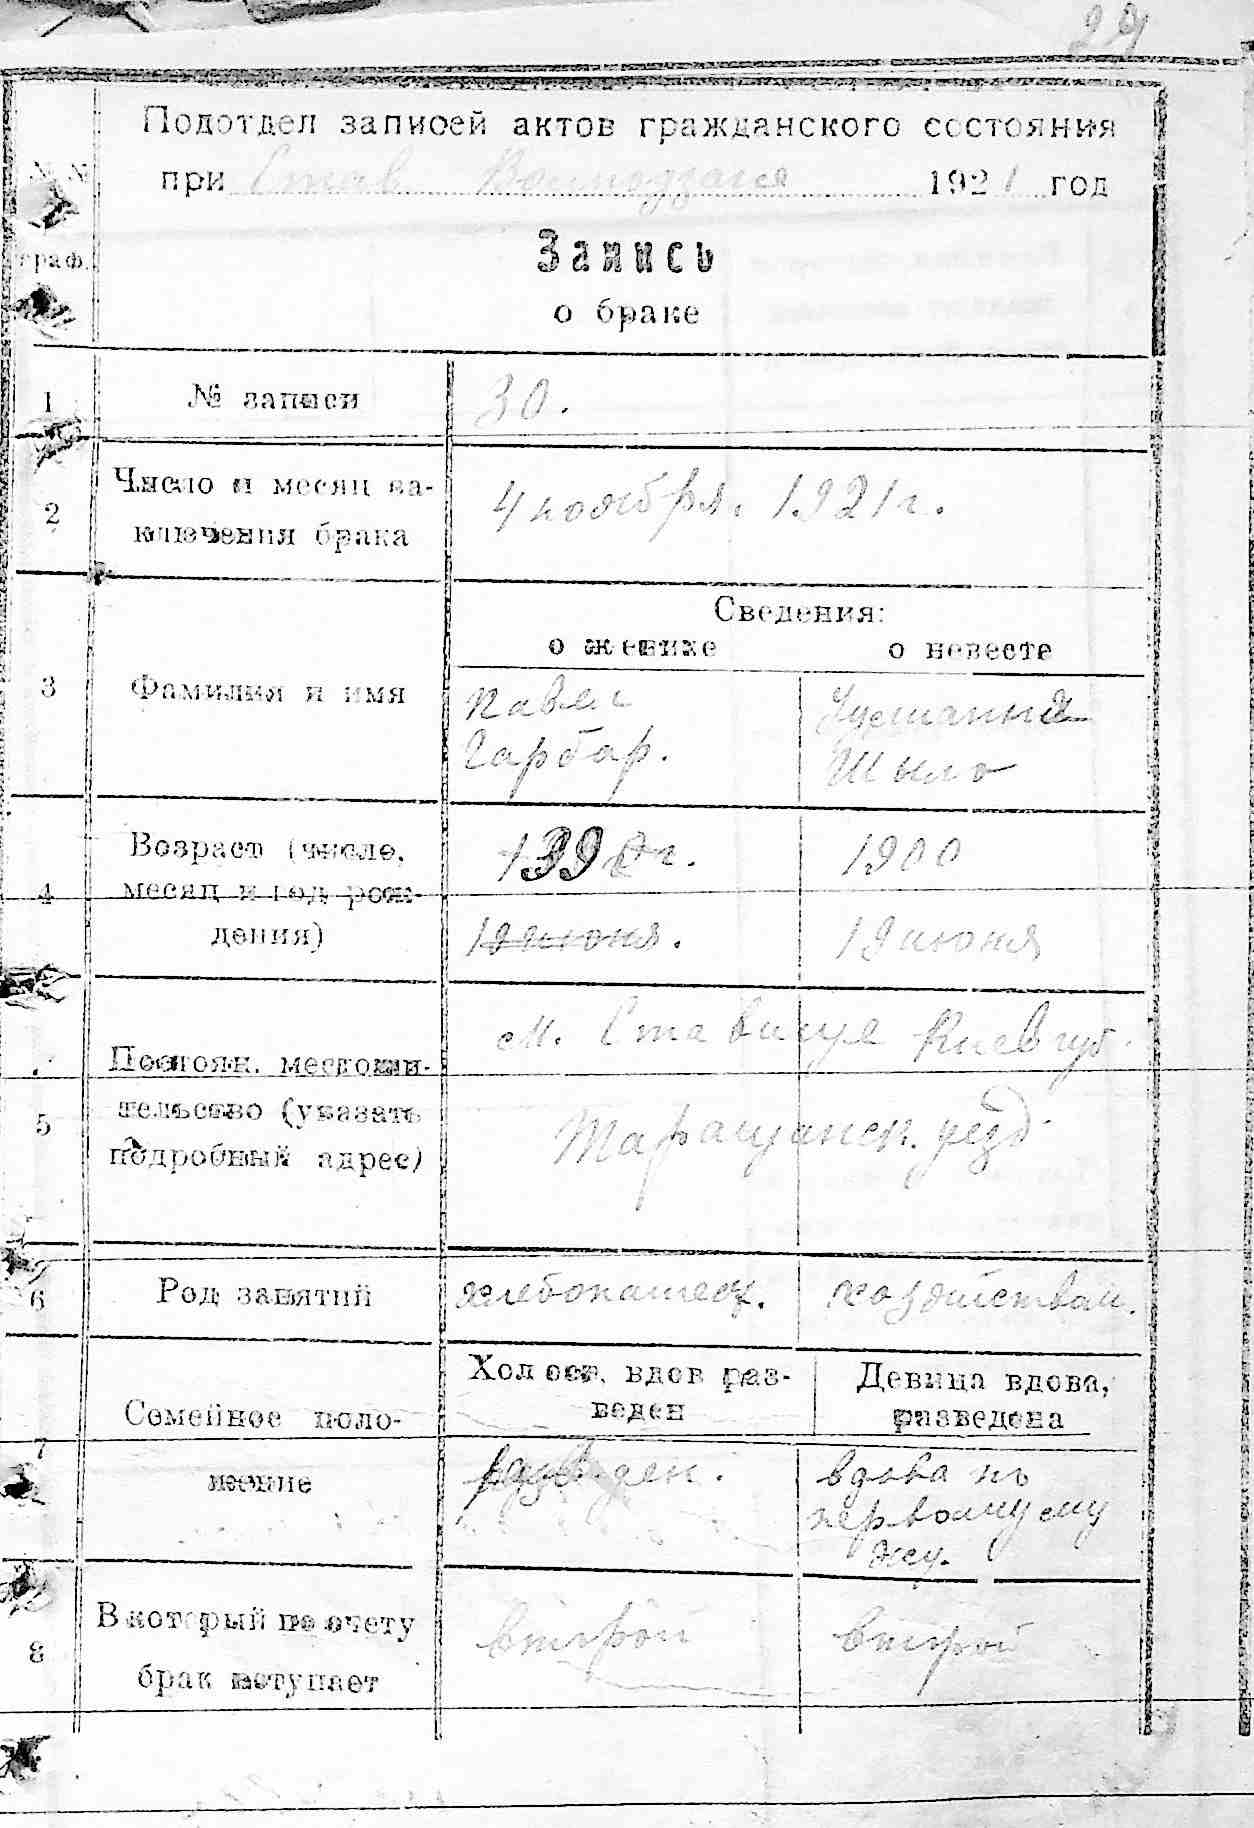 29
Подотдел записей актов гражданского состояния
при Став 1921 год
№ №
граф.
Запись
о браке
1 № записи 30.
2 Число и месяц за-
ключения брака
4 ноября. 1921 г.
Сведения:
о женихе о невесте
3 Фамилия и имя
Павел
Гарбар.
Устинья
Шило
4 Возраст (число,
месяц и год рож-
дения)
г. 1900
19 июня. 19 июня
5 Постоян. местожи-
тельство (указать
подробный адрес)
м. Ставище Киев губ.
Таращанск. уезд.
6 Род занятий хлебопашец. хозяйствам.
7 Семейное поло-
жение
Холост, вдов раз-
веден
Девица вдова,
разведена
вдова по
первому му
жу.
8 В который по счету
брак вступает
второй второй